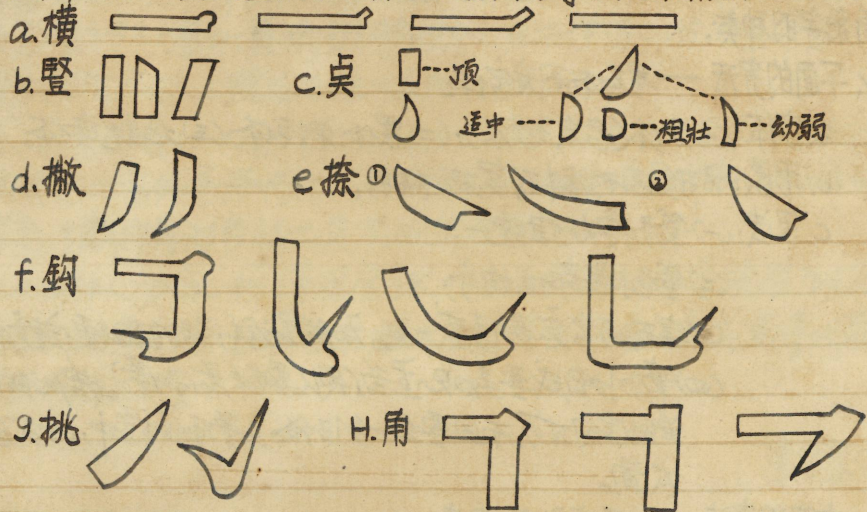 a.横
b.豎 c.奌 顶
适中 粗壯 幼弱
d.撇 e捺① ②
f.鈎
g.挑 H.角